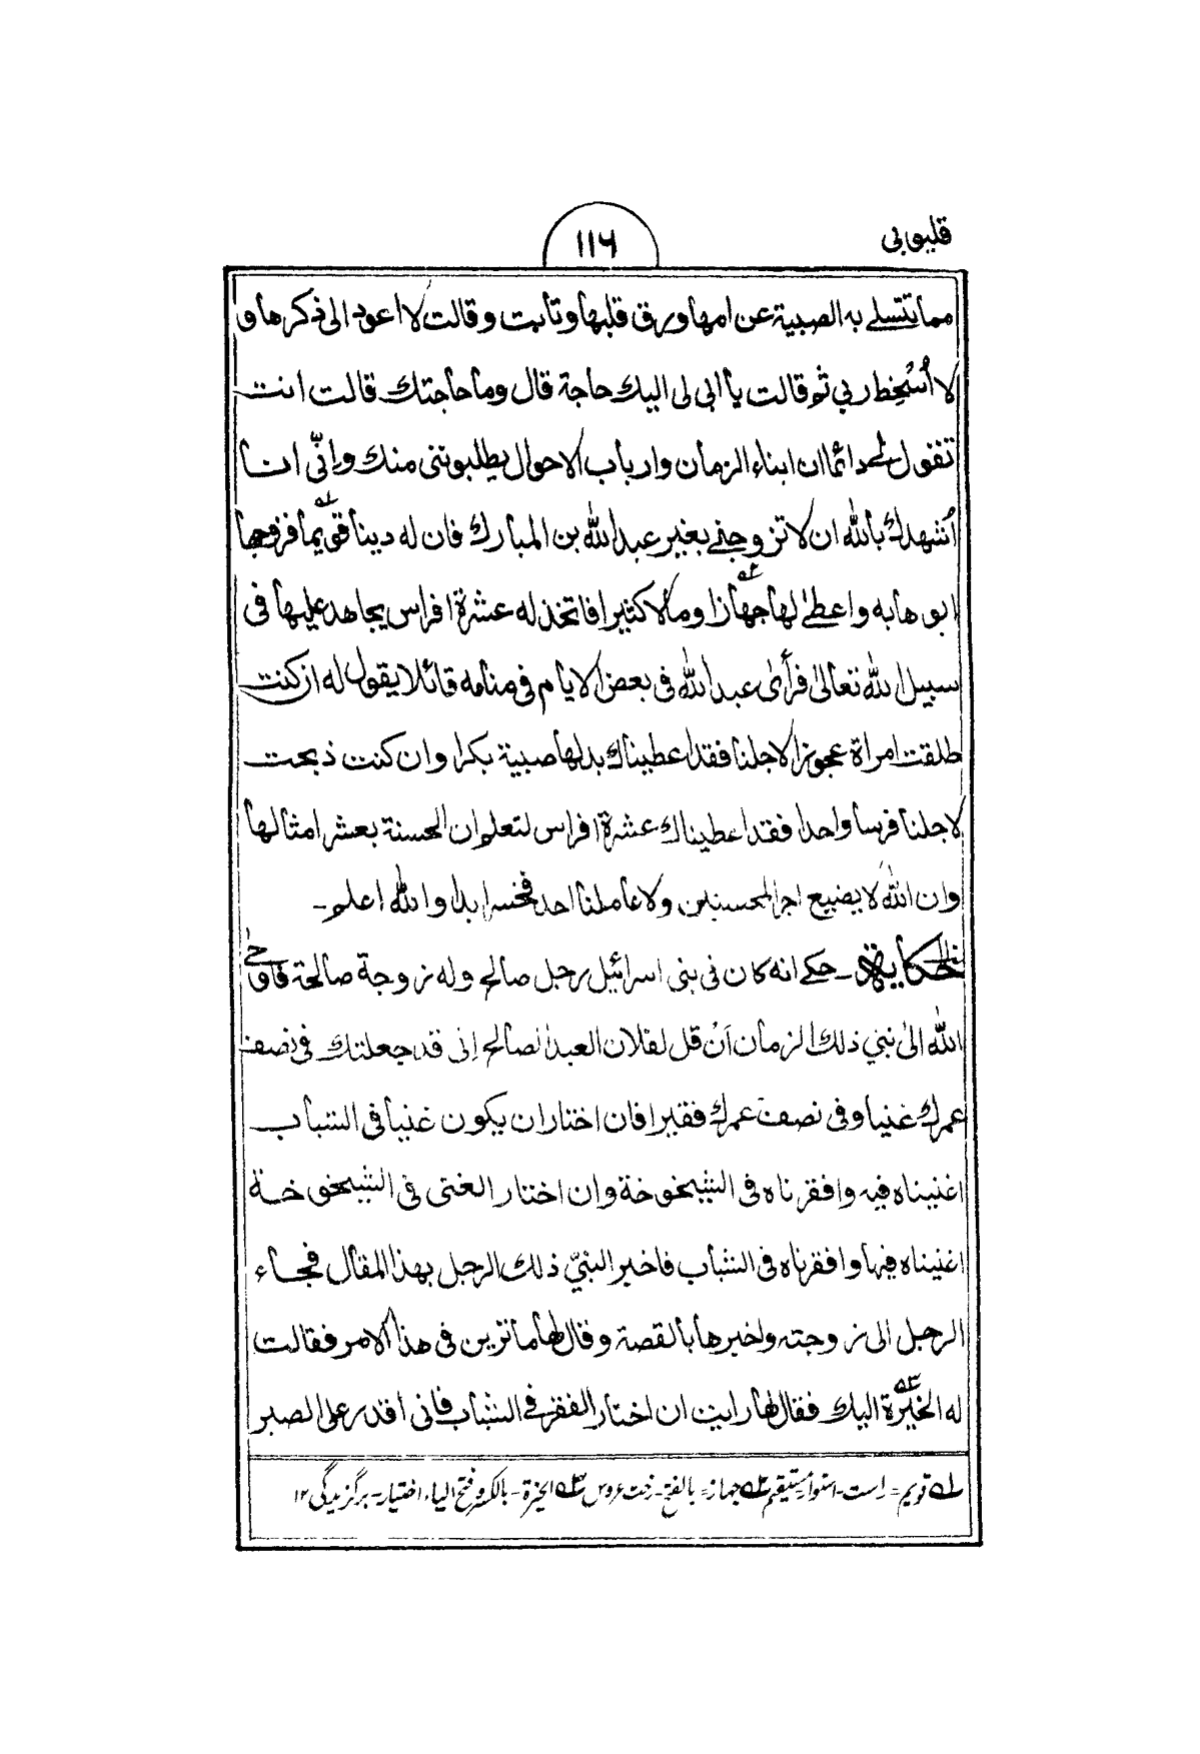 قليوبي
١١٦
مما يتسلى به الصبية عن امها ورق قلبها وتابت وقالت لا اعود الى ذكرها و
لا أُسْخِط ربي ثم قالت يا ابى لى اليك حاجة قال وما حاجتك قالت انت
تقول لى دائما ان ابناء الزمان وارباب الاحوال يطلبوننى منك وإنّى انا
أنشهدك بالله ان لا تزوجنى بغير عبد الله بن المبارك فان له دينا قويما فزوجها
ابوها به واعطى لها جهازا ومالا كثيرا فاتخذ له عشرة افراس يجاهد عليها فى
سبيل الله تعالى فرأى عبد الله فى بعض الايام فى منامه قائلا يقول له ان كنت
طلقت امراة عجوزا لاجلنا فقد اعطيناك بدلها صبية بكرا وان كنت ذبحت
لاجلنا فرسا واحدا فقد اعطيناك عشرة افراس لتعلم ان الحسنة بعشر امثالها
وان الله لا يضيع اجر المحسنين ولا عاملنا احد فخسر ابدا والله اعلم ـ
الحكاية ـ حكى انه كان فى بنى اسرائيل رجل صالح وله زوجة صالحة فاوحى
الله الى نبي ذلك الزمان اَنْ قل لفلان العبد الصالح إنى قد جعلتك فى نصف
عمرك غنيا وفى نصف عمرك فقيرا فان اختار ان يكون غنيا فى الشباب
اغنيناه فيه وافقرناه فى الشيخوخة وان اختار الغنى فى الشيخوخة
اغنيناه فيها وافقرناه فى الشباب فاخبر النبيّ ذلك الرجل بهذا المقال فجاء
الرجل الى زوجته واخبرها بالقصة وقال لها ما ترين فى هذا الامر فقالت
له الخيرة اليك فقال لها رايت ان اختار الفقر فى الشباب فانى اقدر على الصبر
لـه قويم = راست ـ استوار مستقيم ٢ـه جهاز = بالفتح ـ رخت عروس ٣ـه الخيرة ـ بالكسر وفتح الياء، اختيار ـ برگزيدگى ١٢